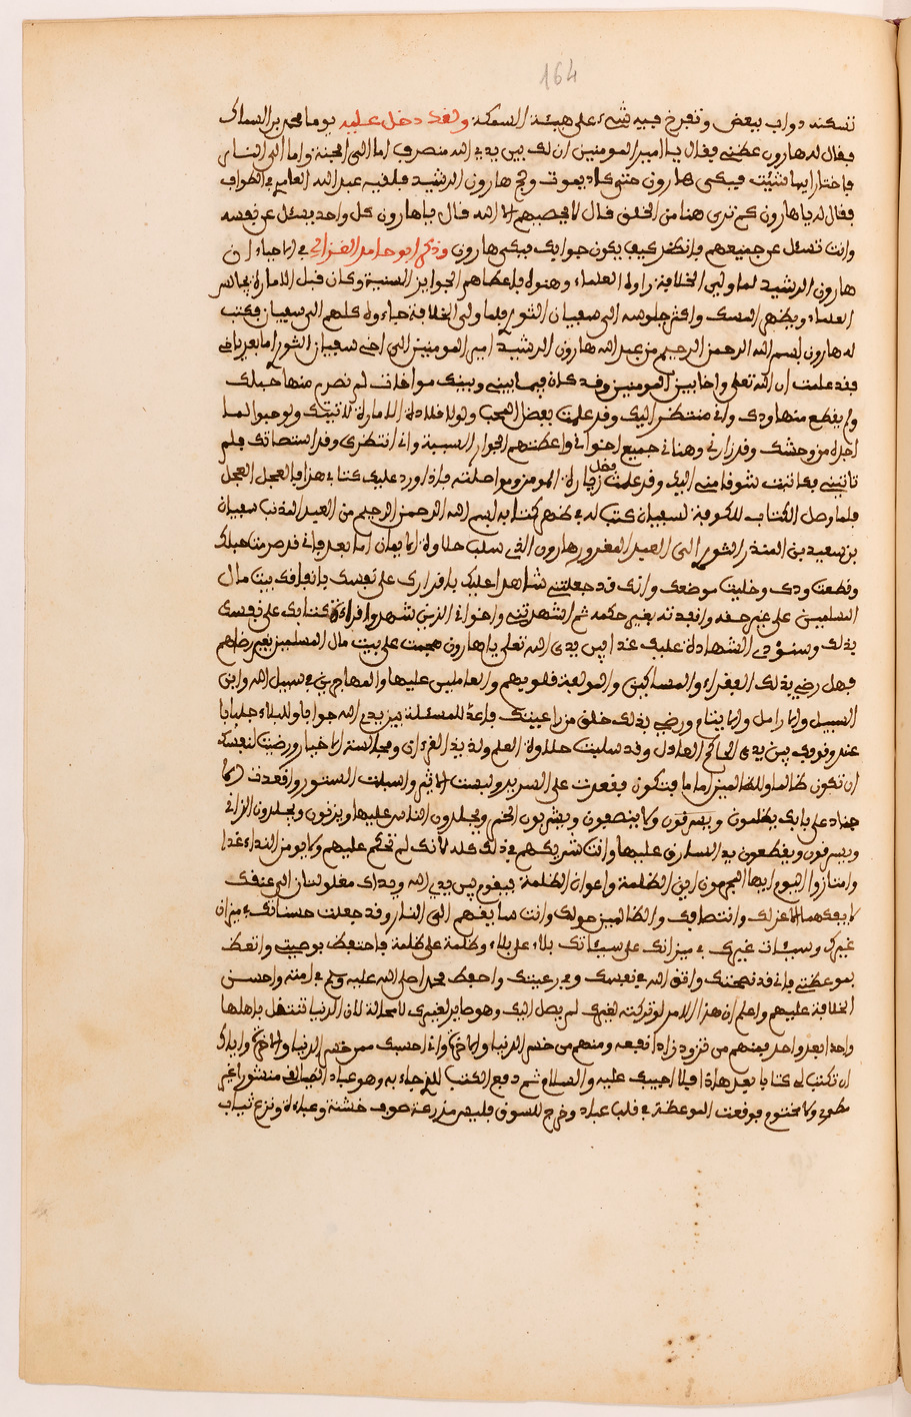 164
تسكنه دواب ببعض وتفرخ فيه شيء على هيئة السمكة ولقد دخل عليه يوما محمد بن السماك
فقال له هارون عظني فقال يا امير المومنين ان لك بين يدي الله منصرف اما الى الجنة واما الى النار
فاختار ايهما شئت فبكى هارون حتى كاد يموت وحج هارون الرشيد فلقيه عبد الله العامري في الطواف
فقال له يا هارون كم ترى هنا من الخلق قال لا يحصيهم الا الله قال يا هارون كل واحد يسئل عن نفسه
وانت تسئل عن جميعهم فانظر كيف يكون جوابك فبكى هارون وذكر ابو حامد الغزالي في الاحياء ان
هارون الرشيد لما ولي الخلافة زاره العلماء وهنوه فاعطاهم الجوايز السنية وكان قبل الامارة يجالس
العلماء ويظهر النسك واكثر جلوسه الى سفيان الثوري فلما ولي الخلافة جاءوه كلهم الى سفيان فكتب
له هارون بسم الله الرحمن الرحيم من عبد الله هارون الرشيد امير المومنين الى اخي سفيان الثوري اما بعد يا اخي
فقد علمت ان الله تعلى واخا بين المومنين وقد كان فيما بيني وبينك مواخات لم نصرم منها حبلك
ولم يقطع منها ودك وانى منتظر اليك وقد علمت بعض المحب ولولا قلادة الامارة لاتيتك ولو حبوا لما
اجده من وحشك وقد زارني وهناني جميع اخواني واعطيتهم الجوائز السنية وانى انتظرك وقد استبطاتك فلم
تاتيني فكاتبت شوقا مني اليك وقد علمت فضل زيارة المومن ومواصلته فاذا ورد عليك كتابي هذا فالعجل العجل
فلما وصل الكتاب للكوفة لسفيان كتب له في ظهر كتابه بسم الله الرحمن الرحيم من العبد المذنب سفيان
بن سعيد بن المنذر الثوري الى العبد المغرور هارون الذي سلب حلاوة الايمان اما بعد فاني قد صرمت حبلك
وقطعت ودك وخليت موضعك وانك قد جعلتني شاهدا عليك باقرارك على نفسك بانفاقك بيت مال
المسلمين على غير حقه وانفدته بغير حكمه ثم اشهدتني واخواني الذين شهدوا قراءة كتابك على نفسك
بذلك وسنؤدي الشهادة عليك غدا بين يدي الله تعلى يا هارون هجمت على بيت مال المسلمين بغير رضاهم
فهل رضي بذلك الفقراء والمساكين والمولفة قلوبهم والعاملين عليها والمهاجرين في سبيل الله وابن
السبيل والارامل والايتام ورضي بذلك خلق من راعيتك فاعد للمسئلة بين يدي الله جوابا وللبلاء جلبابا
عند وقوفك بين يدي الحاكم العادل وقد سلبت حلاوة العلم ولذيذ القرءان ومجالسة الاخيار ورضيت لنفسك
ان تكون ظالما وللظالمين اماما فتكون فقعدت على السرير ولبست الاثم واسبلت الستور واقعدت الا
جناد على بابك يظلمون ويسرقون ولا ينصفون ويشربون الخمر ويجلدون الناس عليها ويزنون ويجلدون الزاني
ويسرقون ويقطعون يد السارق عليها وانت شريكهم في ذلك كله لانك لم تحكم عليهم ولا يومن النداء غدا
وامتازوا اليوم ايها المجرمون اين الظلمة واعوان الظلمة فيقوم بين يدي الله ويداك مغلولتان الى عنقك
لا يفكهما الا عزلك وانتصافك والظالمين حولك وانت سابقهم الى النار وقد جعلت حسناتك في ميزان
غيرك وسيئات غيرك في ميزانك على سيئاتك بلاء على بلاء وظلمة على ظلمة فاحتفظ بوصيتي واتعظ
بموعظتي فاني قد نصحتك واتق الله في نفسك وفي رعيتك واحفظ محمدا صلى الله عليه وسلم في امته واحسن
الخلافة عليهم واعلم ان هذا الامر لو تركته لغيرك لم يصل اليك وهو صاير لغيرك لا محالة لان الدنيا تنتقل باهلها
واحدا بعد واحد فمنهم من تزود زادا نفعه ومنهم من خسر الدنيا والاخرة وانى احسبك ممن خسر الدنيا والاخرة واياك
ان تكتب لي كتابا بعد هاذا فلا اجيبك عليه والسلام ثم دفع الكتب للذي جاءه به وهو عباد الطالقاني منشورا غير
مطوي ولا مختوم فوقعت الموعظة في قلب عباد وخرج للسوق فلبس مدرعة صوف خشنة وعباءة ونزع ثياب